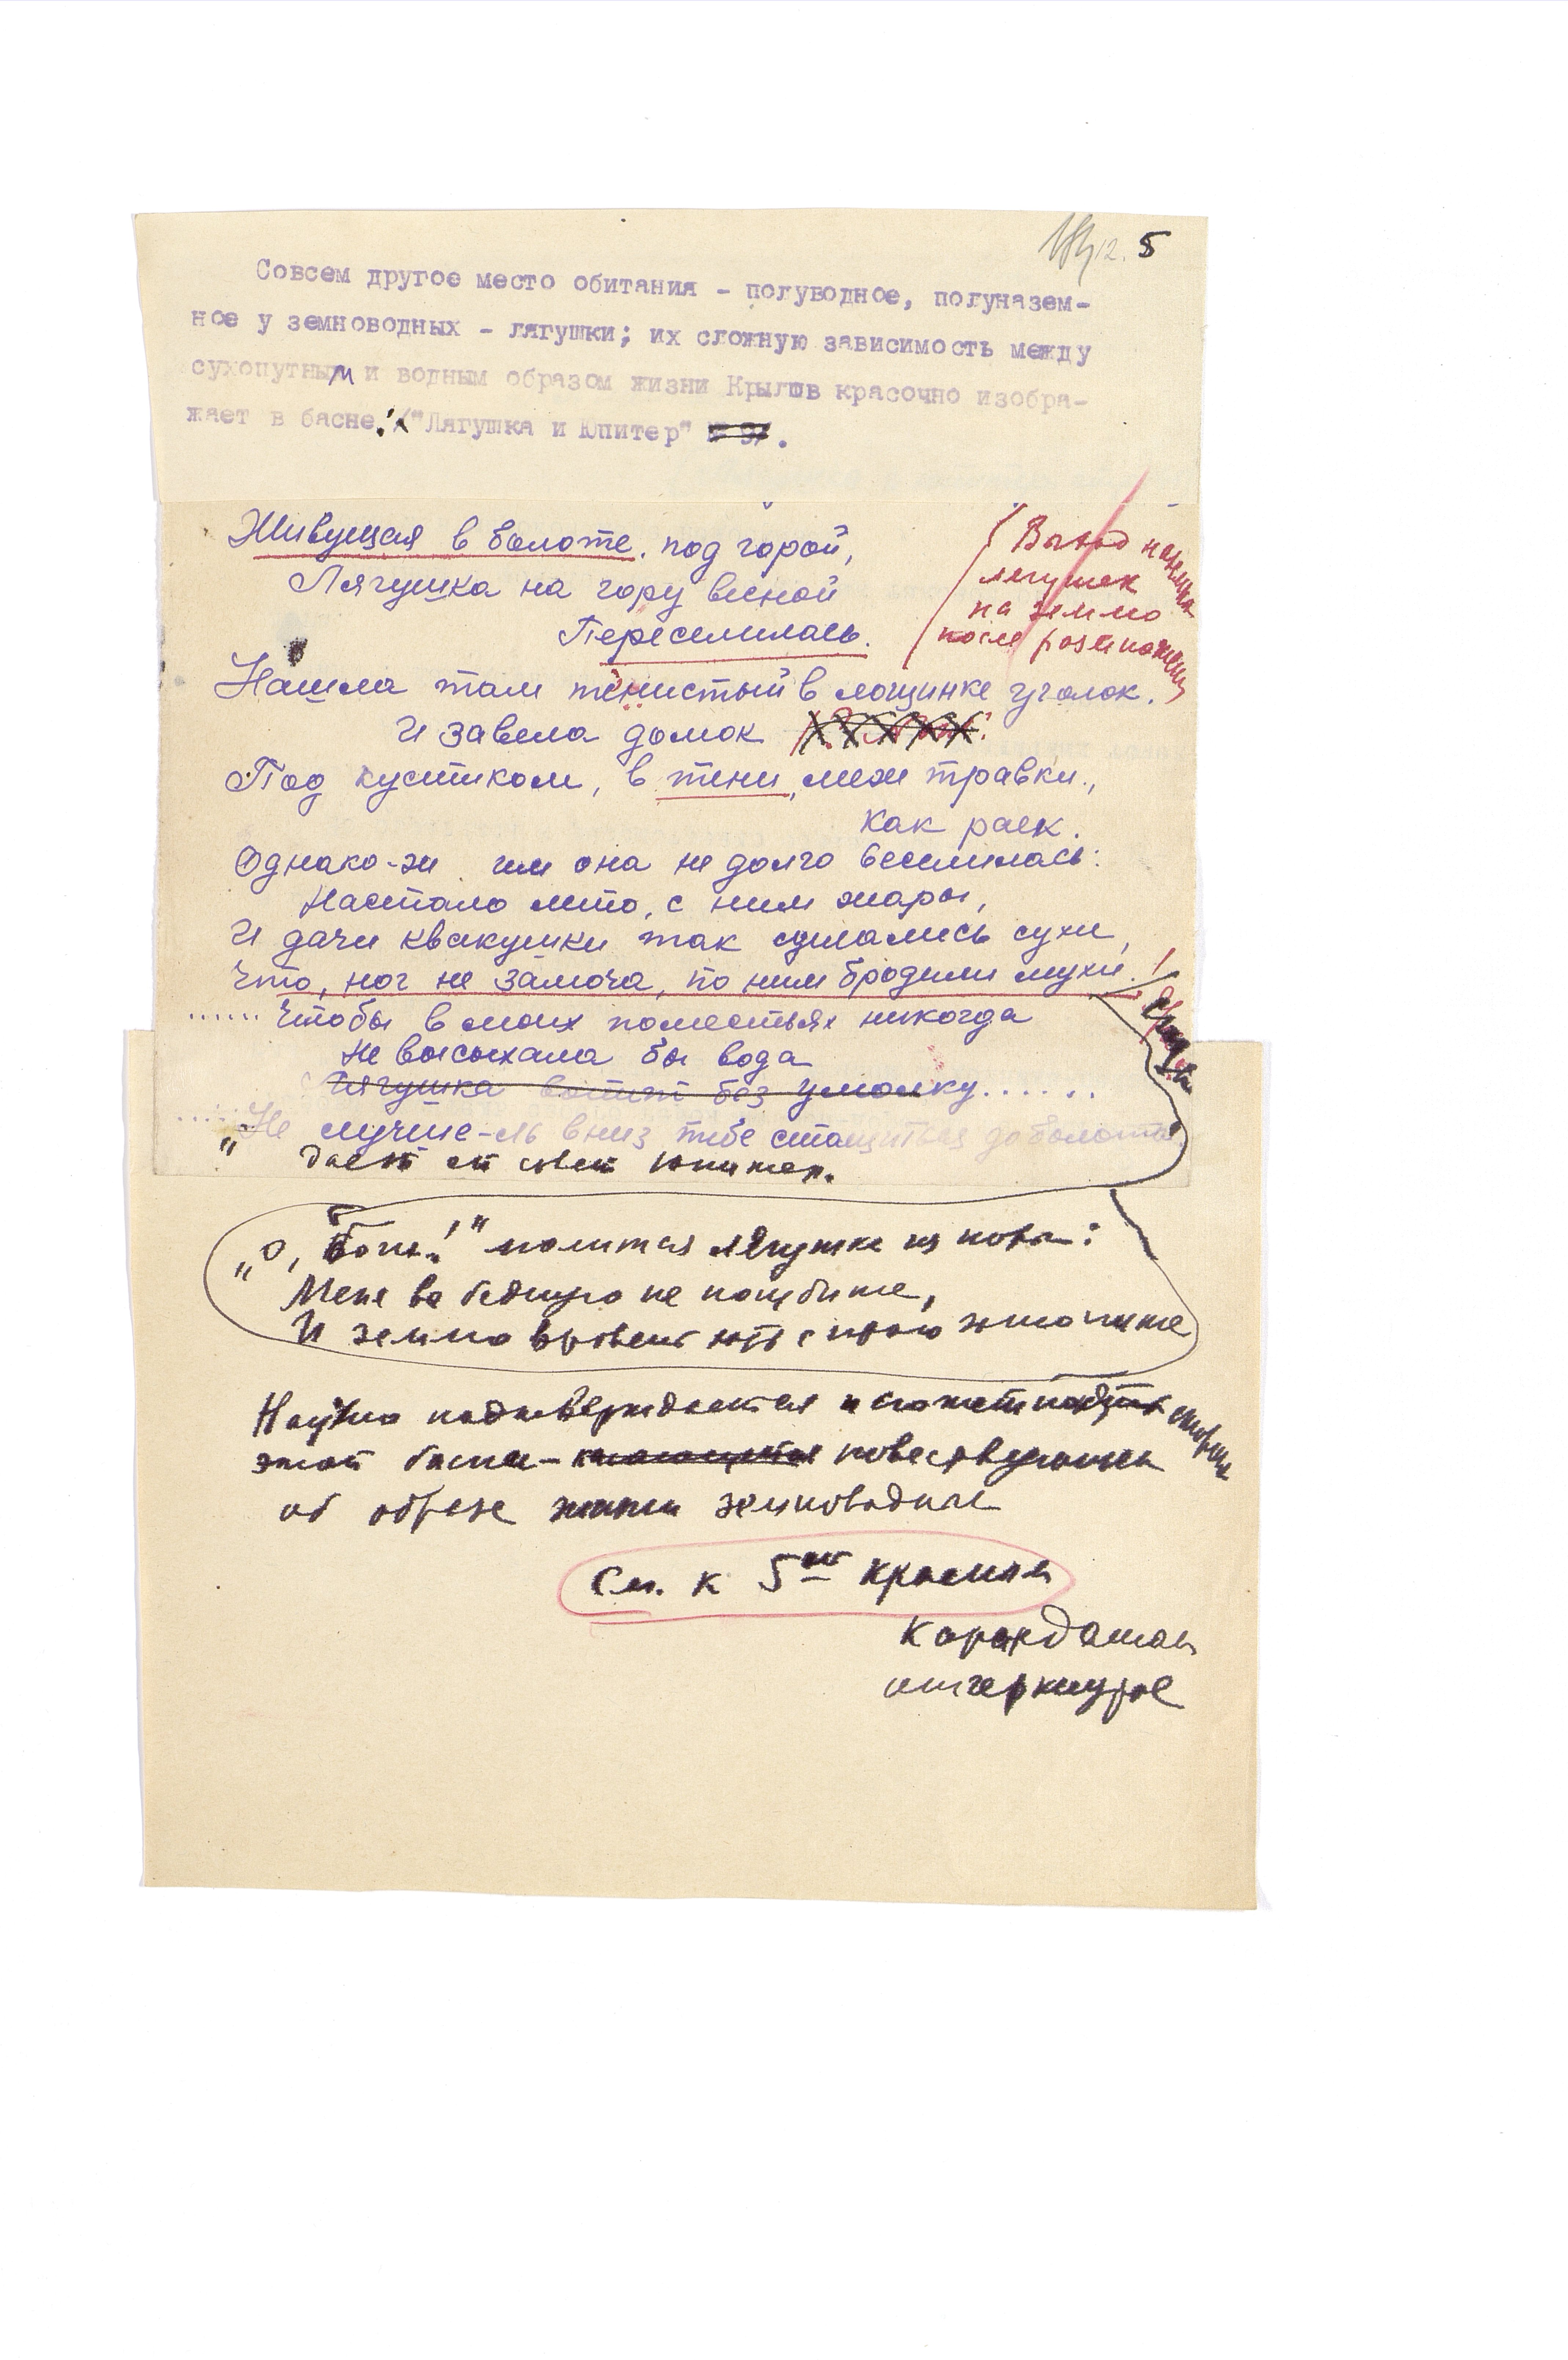 12. 5
Совсем другое место обитания – полуводное, полуназем-
ное у земноводных – лягушки; их сложную зависимость между
сухопутным и водным образом жизни Крылов красочно изобра-
жает в басне: "Лягушка и Юпитер".
Живущая в болоте, под горой,
Лягушка на гору весной
Переселилась.
(Выход
лягушек
на землю
после размножения)
Нашла там тенистый в лощинке уголок.
И завела домок
Под кустиком, в тени, меж травки,
как раек.
Однако-ж им она не долго веселилась:
Настало лето, с ним жары,
И дачи квакушки так сделались сухи,
Что, ног не замоча, по ним бродили мухи!
...... Чтобы в моих поместьях никогда
Не высыхала бы вода
Лягушка вопит без умолку......
...... "Не лучше-ль вниз тебе стащиться до болота
" дает ей совет Юпитер.
„О, Боги!" молится лягушка из норы:
Меня вы бедную не погубите,
И землю вровень с горою
Научно подтверждается и сюжет
этой басни – повествующей
об образе жизни земноводных
См. к 5ой красным
карандашом